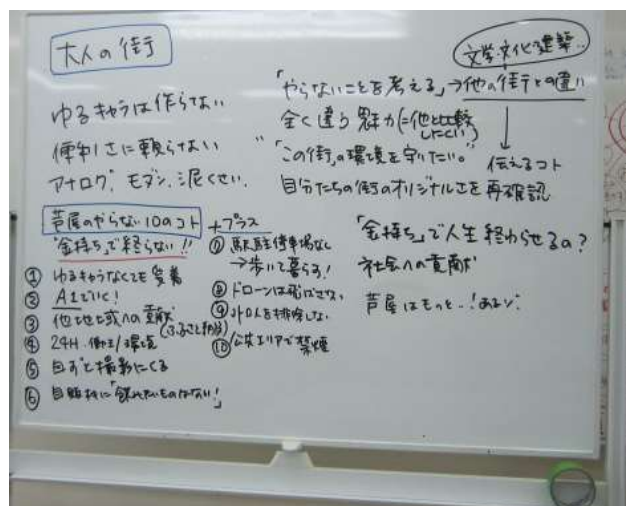 大人の街
ゆるキャラは作らない
便利さに頼らない
アナログ、モダン、泥くさい、
文学・文化・建築..
「やらないことを考える」→他の街との違い
全く違う魅力(=他と比較
しにくい)
"「この街」の環境を守りたい。"
伝えるコト
自分たちの街のオリジナルさを再確認
芦屋のやらない10のコト
"金持ち"で終らない!!
① ゆるキャラなくても
②
③ 他地域への貢献
(ふるさと納税)
④ 24H 働 環境
⑤ 自ずと撮影にくる
⑥ 自販機に「 ものはない!」
+プラス
⑦ 駅駐停車場なし
→歩いて暮らす!
⑧ ドローンは飛ばさない
⑨ 外の人を排除しない
⑩ 公共エリアで禁煙
「金持ち」で人生終わらせるの?
社会への貢献
芦屋はもっと..!あるゾ